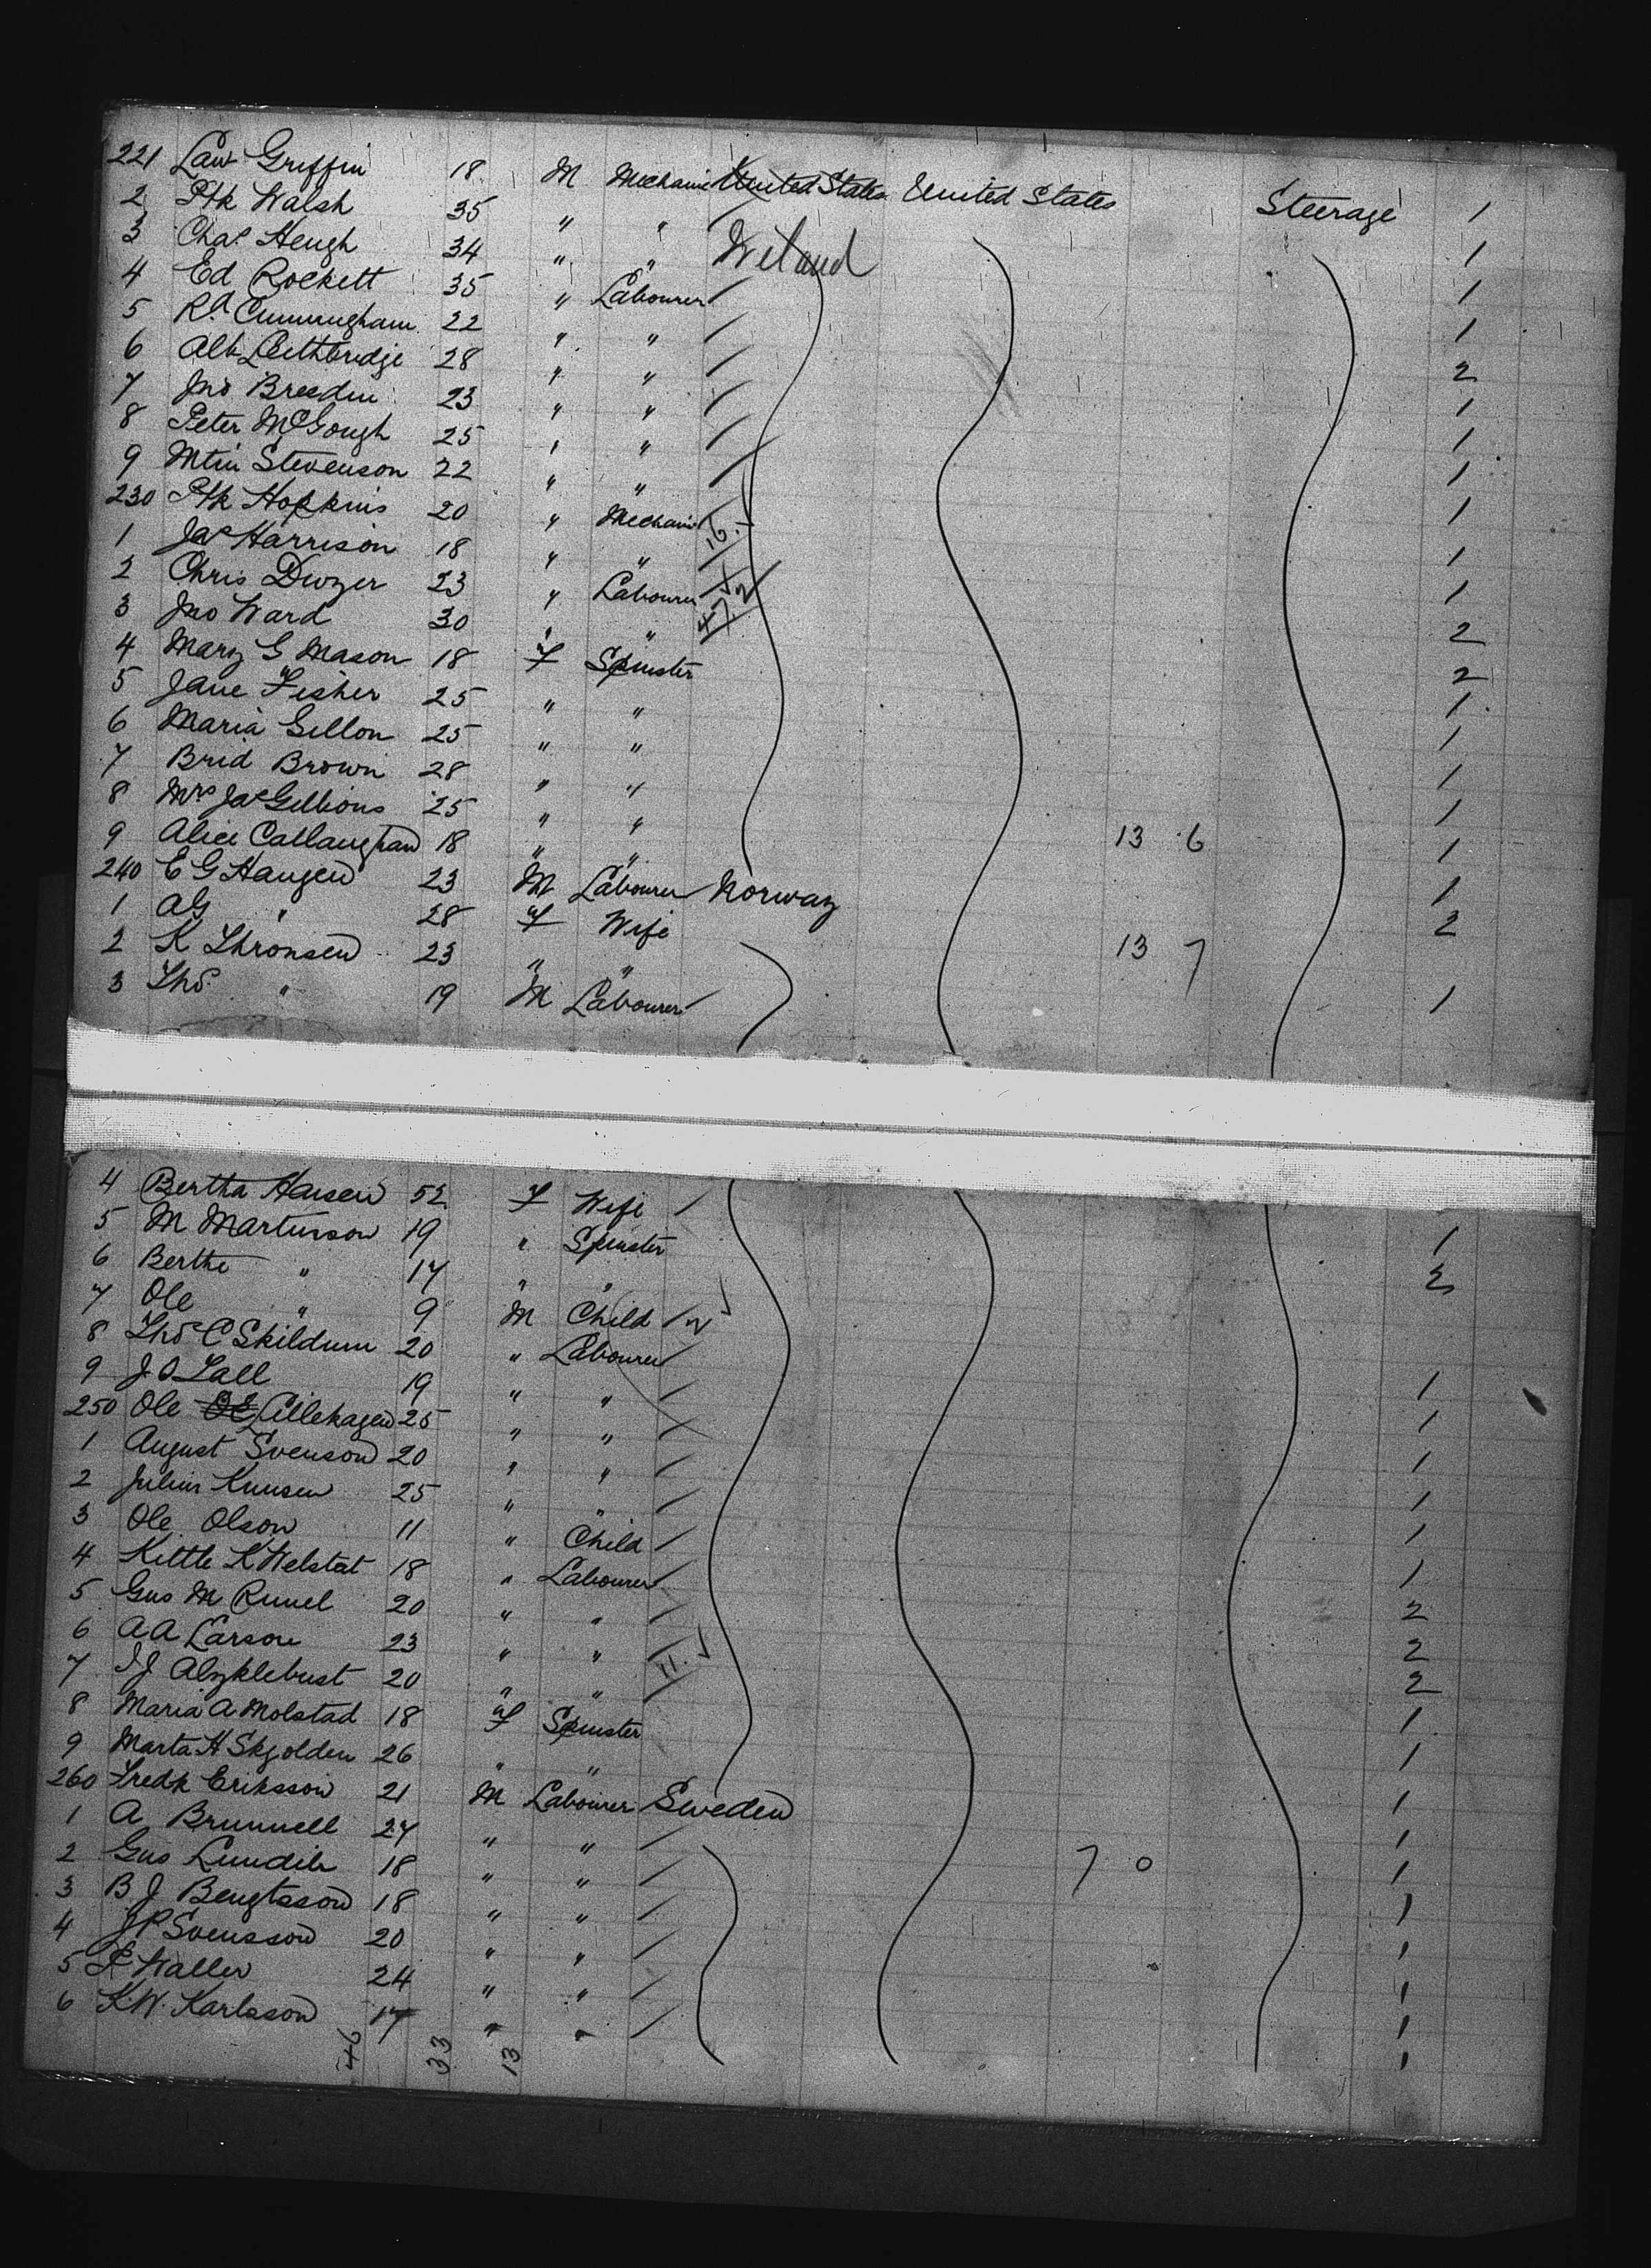 221 Law Griffin 18 M Mechanic United States United States Steerage 1
2 Ptk Walsh 35 " " 1
3 Chas Heugh 34 " " Ireland 1
4 Ed Rockett 35 " Labourer 1
5 Rd Cunningham 22 " " 2
6 Alb Leithbridge 28 " " 1
7 Jno Breedin 23 " " 1
8 Peter McGough 25 " " 1
9 Mtin Stevenson 22 " " 1
230 Ptk Hopkins 20 " Mechanic 1
1 Jas Harrison 18 " " 16.
2 Chris Dwyer 23 " Labourer 1
3 Jno Ward 30 " " 2
4 Mary G Mason 18 F Spinster 2
5 Jane Fisher 25 " " 1
6 Maria Gillon 25 " " 1
7 Brid Brown 28 " " 1
8 Mrs Jas Gillions 25 " " 1
9 Alice Callaughan 18 " " 13 6 1
240 E G Haugen 23 M Labourer Norway 1
1 AG " 28 F Wife 2
2 K Thronsen 23 " " 13 7
3 Thos " 19 M Labourer 1
4 Bertha Hansen 52 F Wife
5 M Martinson 19 " Spinster 1
6 Berthe " 17 " " 2
7 Ole " 9 M Child 2
8 Thos C Skildum 20 " Labourer
9 J O Lall 19 " " 1
250 Ole OE Lillehagen 25 " " 1
1 August Svenson 20 " " 1
2 Julius Knusen 25 " " 1
3 Ole Olson 11 " Child 1
4 Kittle K Helstat 18 " Labourer 1
5 Gus M Runel 20 " " 2
6 A A Larson 23 " " 11. 2
7 J J Alzklebust 20 " " 2
8 Maria A Molstad 18 F Spinster 1
9 Marta H Skjolden 26 " " 1
260 Fredk Eriksson 21 M Labourer Sweden 1
1 A Brunnell 24 " " 1
2 Gus Lundih 18 " " 7 0 1
3 B J Bengtsson 18 " " 1
4 J P Svensson 20 " " 1
5 P Waller 24 " " 1
6 K.W. Karlsson 17 " " 1
46 33 13